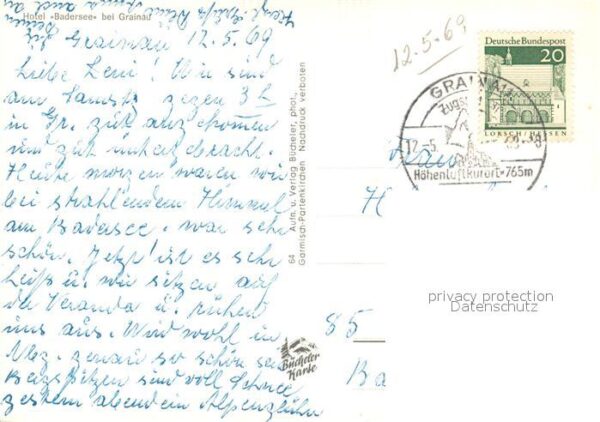 Hotel »Badersee« bei Grainau
Herzl. Grüße
Grainau 12.5.69
Liebe Leni! Wir sind
am Samst. gegen 3 h
in Gr. gut angekommen
und gut untergebracht.
Heute morgen waren wir
bei strahlendem Himmel
am Badersee. war sehr
schön. Jetzt ist es sehr
heiß u. wir sitzen auf
der Veranda u. ruhen
uns aus. Wird wohl in
Nbg. genau so schön sein
Bergspitzen sind voll Schnee
gestern abend ein Alpenglühn
64 Aufn. u. Verlag Bücheler, phot.,
Garmisch-Partenkirchen Nachdruck verboten
Bücheler
Karte
12.5.69
Deutsche Bundespost
20
LORSCH/HESSEN
GRAINAU
12.-5.
Höhenluftkurort·765m
H
85
Ba
privacy protection
Datenschutz